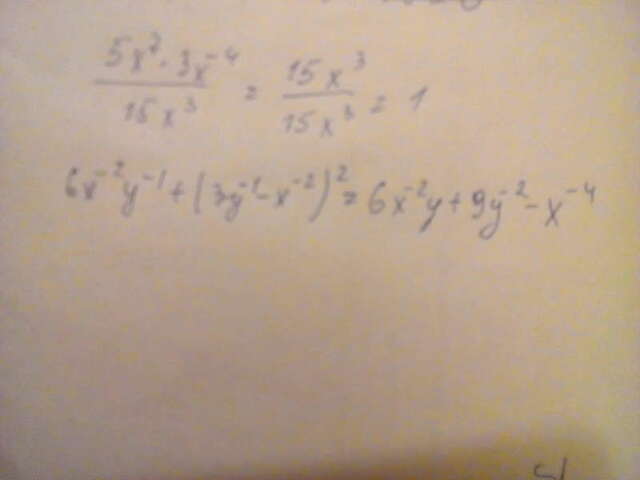 5x⁷ · 3x⁻⁴ / 15x³ = 15x³ / 15x³ = 1
6x⁻²y⁻¹ + (3y⁻¹ - x⁻²)² = 6x⁻²y + 9y⁻² - x⁻⁴